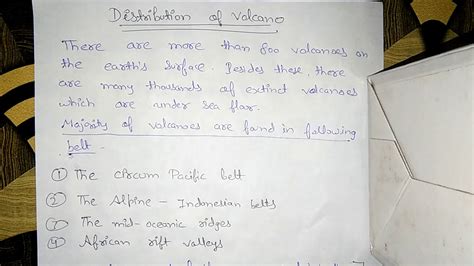 Distribution of Volcano
There are more than 800 volcanoes on
the earth's surface. Besides these, there
are many thousands of extinct volcanoes
which are under sea flar.
Majority of volcanoes are found in following
belt -
① The circum Pacific belt
② The Alpine - Indonesian belts
③ The mid-oceanic ridges
④ African rift valleys